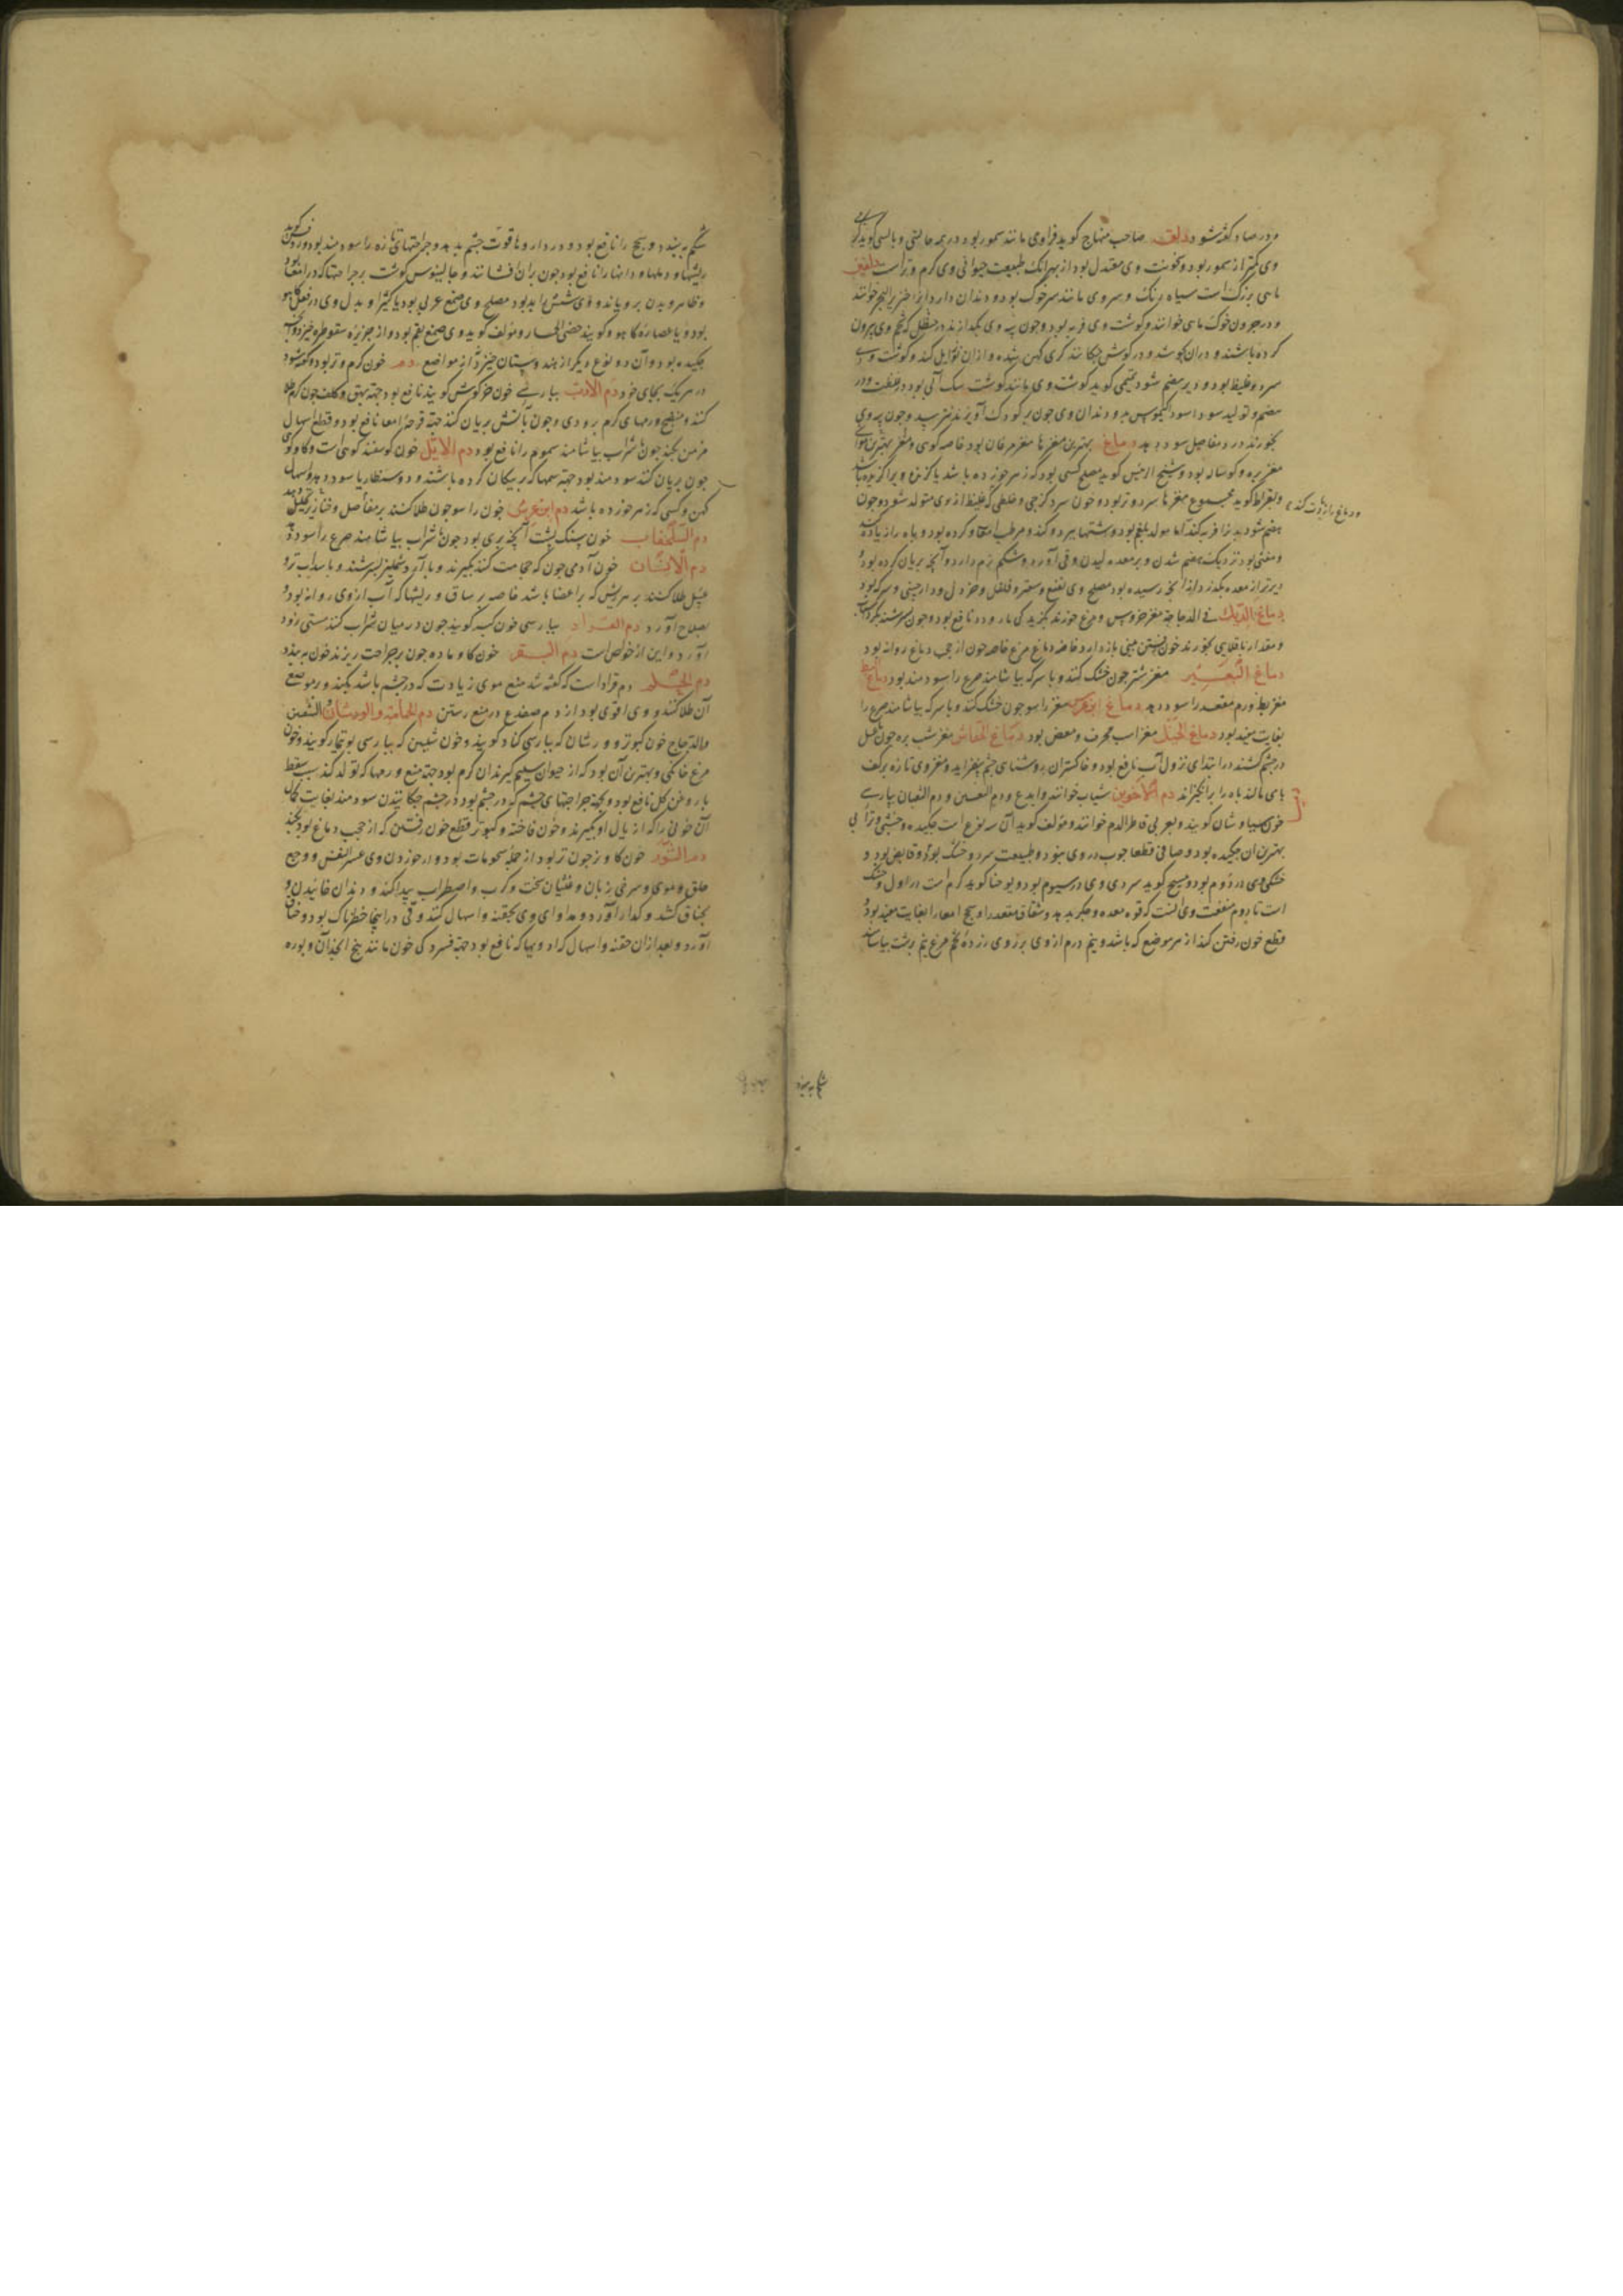 و در صاد گفته شود دلق صاحب منهاج گوید فراوی مانند سمور بود در همه حالتی و
وی کمتر از سمور بود و سخونت وی معتدل بود از بهر آنک طبیعت حیوانی وی گرم و تر است دلفین
ماهی بزرگ است سیاه رنگ و سر وی مانند سر خوک بود و دندان دارد او را خنزیر البحر خوانند
و خوک ماهی خوانند و گوشت وی فربه بود و چون پیه وی بگدازند در حنظل که تخم وی بیرون
کرده باشند و در گوش چکانند کری کهن شده را زایل کند و گوشت وی
سرد و غلیظ بود و دیر هضم شود تمیمی گوید گوشت وی مانند گوشت سک آبی بود در غلظت و در
هضم و تولید سودا سود و دندان وی چون بر کودک آویزند نترسد و چون پیه وی
بخورند درد مفاصل سود دهد دماغ بهترین مغزها مغز مرغان بود خاصه کوهی و مغز
مغز بره و گوساله بود و شیخ الرئیس گوید مصلح کسی بود که زهر خورده باشد یا گزنده ویرا گزیده باشد
و بقراط گوید مجموع مغزها سرد و تر بود و خون سرد لزجی و خلطی غلیظ از وی متولد شود و چون
هضم شود بدن را فربه کند اما مولد بلغم بود و شهوتها ببرد و کند و مرطب امعا و گرده بود و باه را زیاده کند
و مغثی بود نزدیک هضم شدن و بر معده لیدن و قی آورد و شکم نرم دارد و آنچه بریان کرده بود
دیرتر از معده بگذرد از آنچه رسیده بود مصلح وی نعنع و سعتر و فلفل و خردل و دارچینی و سرکه بود
دماغ الدیک فی الدجاجة مغز خروس و مرغ خورند گزیدگی مار و دد نافع بود و چون
و مقدار باقلایی بخورند خون رفتن بینی باز دارد خاصه دماغ مرغ خاصه خون از حجب دماغ روانه بود
دماغ البعیر مغز شتر چون خشک کنند و با سرکه بیاشامند صرع را سودمند بود دماغ البط
مغز بط ورم مقعد را سود دهد دماغ ابن عرس مغز راسو چون خشک کنند و با سرکه بیاشامند صرع را
بغایت مفید بود دماغ الخیل مغز اسب محرف و معفن بود دماغ الخفاش مغز شب پره چون با عسل
در چشم کشند در ابتدای نزول آب نافع بود و خاکستر آن روشنای چشم بیفزاید و مغز وی تازه بر کف
پای مالند باه را برانگیزاند دم الاخوین شیاب خوانند و ایدع و دم التنین و دم الثعبان بپارسی
خون سیاوشان گویند و بعربی قاطر الدم خوانند و مؤلف گوید آن سه نوع است چکیده و حبشی و ترابی
بهترین آن چکیده بود و صافی قطعا چوب در وی نبود و طبیعت سرد و خشک بود و قابض بود و
خشکی وی در دوم بود و مسیح گوید سردی وی در سیوم بود و یوحنا گوید گرم است در اول و خشک
است تا دوم منفعت وی آنست که قوه معده و جگر بدهد و شقاق مقعد را و سحج امعا را بغایت مفید بود
قطع خون رفتن کند از هر موضع که باشد و نیم درم از وی بر زرده تخم مرغ نیم برشت بیاشامند
و دماغ را زیادت کند
شکم ببندد
شکم ببندد و سحج را نافع بود و در داروها قوت چشم بدهد و جراحتهای تازه را سودمند بود
ریشها و دملها و دانها را نافع بود چون بر آن افشانند و جالینوس گوشت بر جراحتها که در اعضا
و ظاهر و بدن برویاند و وی شش را بد بود مصلح وی صمغ عربی بود یا کثیرا و بدل وی در فعل کاهو
بود و یا عصاره کاهو و گویند خصی الحمار و مؤلف گوید وی صمغ بقم بود و از جزیره سقوطره خیزد و آن
چکیده بود و آن دو نوع دیگر از هندوستان خیزد از مواضع دم خون گرم و تر بود و گفته شود
در هر یک بجای خود دم الارنب بپارسی خون خرگوش گویند نافع بود جهت بهق و کلف چون گرم طلا
کنند و منضج ورمهای گرم بزودی و چون بآتش بریان کنند جهة قرحه امعا نافع بود و قطع اسهال
مزمن بکند چون با شراب بیاشامند سموم را نافع بود دم الایل خون گوسفند کوهی است و گاو کوهی
چون بریان کنند سودمند بود جهة سمها که بر پیکان کرده باشند و دوسنطاریا سود دهد و اسهال
کهن و کسی که زهر خورده باشد دم ابن عرس خون راسو چون طلا کنند بر مفاصل و خنازیر تحلیل دهد
دم السلحفاة خون سنگ پشت آنچه بری بود چون با شراب بیاشامند صرع را سود دهد
دم الانسان خون آدمی چون که حجامت کنند بگیرند و با آرد شنبلیز بسرشند و با سداب تر و
عسل طلا کنند بر هر ریش که بر اعضا باشد خاصه بر ساق و ریشها که آب از وی روانه بود
بصلاح آورد دم القراد بپارسی خون کنه گویند چون در میان شراب کنند مستی زود
آورد و این از خواص است دم البقر خون گاو ماده چون بر جراحت ریزند خون ببندد
دم الحلم دم قراد است که گفته شد منع موی زیادت که در چشم باشد بکند و موضع
آن طلا کنند و وی اقوی بود از دم ضفدع در منع رستن دم الحمامة و الورشان و الشفنین
و الدجاج خون کبوتر و ورشان که بپارسی گویند و خون شفنین که بپارسی بوتیمار گویند و خون
مرغ خانگی و بهترین آن بود که از حیوان سلیم گیرند آن گرم بود جهة منع ورمها که تولد کند بسبب سقطه
با روغن گل نافع بود و جهة جراحتهای چشم که در چشم بود در چشم چکانیدن سودمند بغایت بود
آن خونی را که از بال او بگیرند و خون فاخته و کبوتر قطع خون رفتن که از حجب دماغ بود بکند
دم الثور خون گاو نر چون تر بود از جمله سمومات بود و از خوردن وی عسر النفس و وجع
حلق و موی و سرخی زبان و غثیان سخت و کرب و اضطراب پیدا کند و دندان خاییدن و
بخناق کشد و کزاز آورد و مداوای وی بحقنه و اسهال کنند و قی در اینجا خطرناک بود و خناق
آورد و بعد از آن حقنه و اسهال که ادویها که نافع بود جهة فسردگی خون مانند بیخ انجدان و بوره